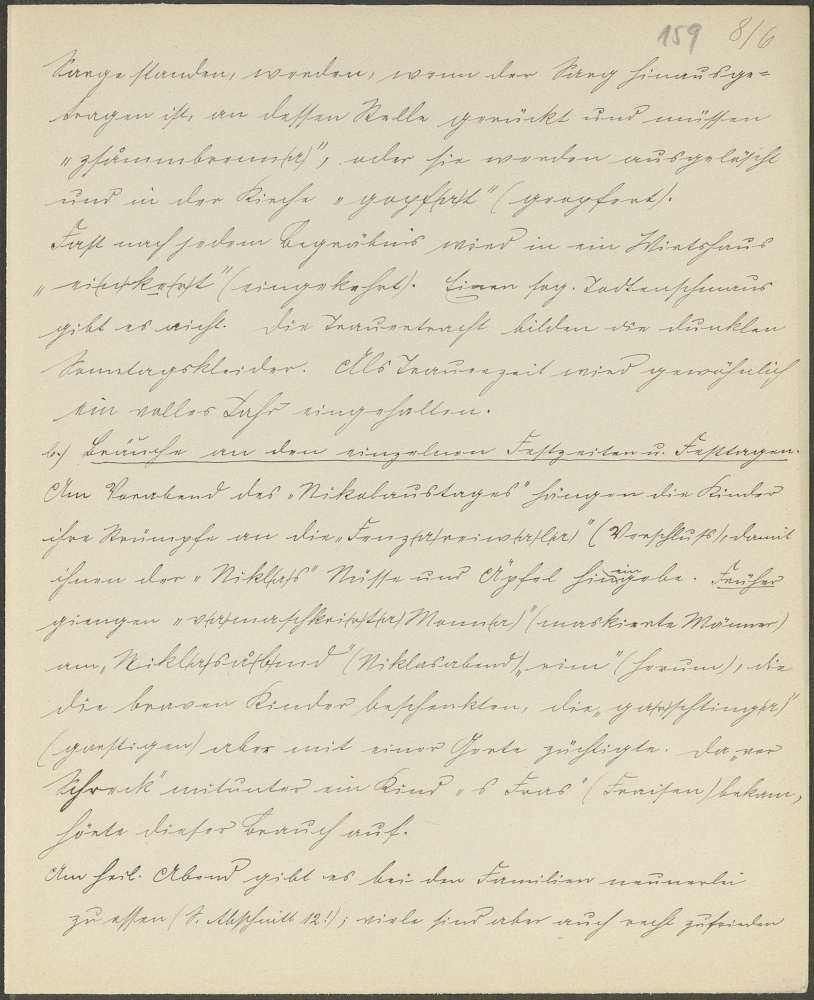 159 8/6
Sarge standen, werden, wenn der Sarg hinausge=
tragen ist, an dessen Stelle gerückt und müssen
"zsåmmbrenn(a)", oder sie werden ausgelöscht
und in der Kirche "gopf(a)t" (geopfert).
Fast nach jedem Begräbnis wird in ein Wirtshaus
(eingekehrt). Einen sog. Todtenschmaus
gibt es nicht. Die Trauertracht bilden die dunklen
Sonntagskleider. Als Trauerzeit wird gewöhnlich
ein volles Jahr eingehalten.
b.) Bräuche an den einzelnen Festzeiten u. Festtagen.
Am Vorabend des "Nikolaustages" hängen die Kinder
ihre Strümpfe an die (Verschluß), damit
ihnen der "Nikl(a)s" Nüsse und Äpfel hineingebe. Früher
giengen (maskierte Männer)
am "Nikl(a)såb(e)nd" (Niklasabend) "rim" (herum), die
die braven Kinder beschenkten, die "ga(r)schting(a)"
(garstigen) aber mit einer Gerte züchtigte. Da "ver
Schreck" mitunter ein Kind "s Fras" (Fraisen) bekam,
hörte dieser Brauch auf.
Am heil. Abend gibt es bei den Familien neunerlei
zu essen (S. Abschnitt 12!); viele sind aber auch recht zufrieden